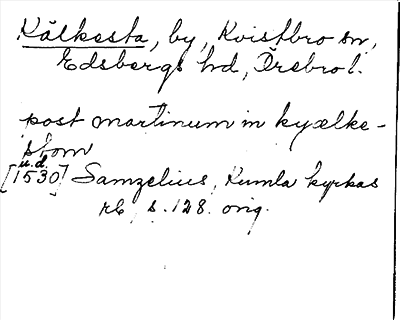 Kälkesta, by, Kvistbro sn,
Edsbergs hd, Örebro l.
post martinum in kyælke-
stom
u.d.
[1530] Samzelius, Kumla kyrkas
rb, s. 128. orig.